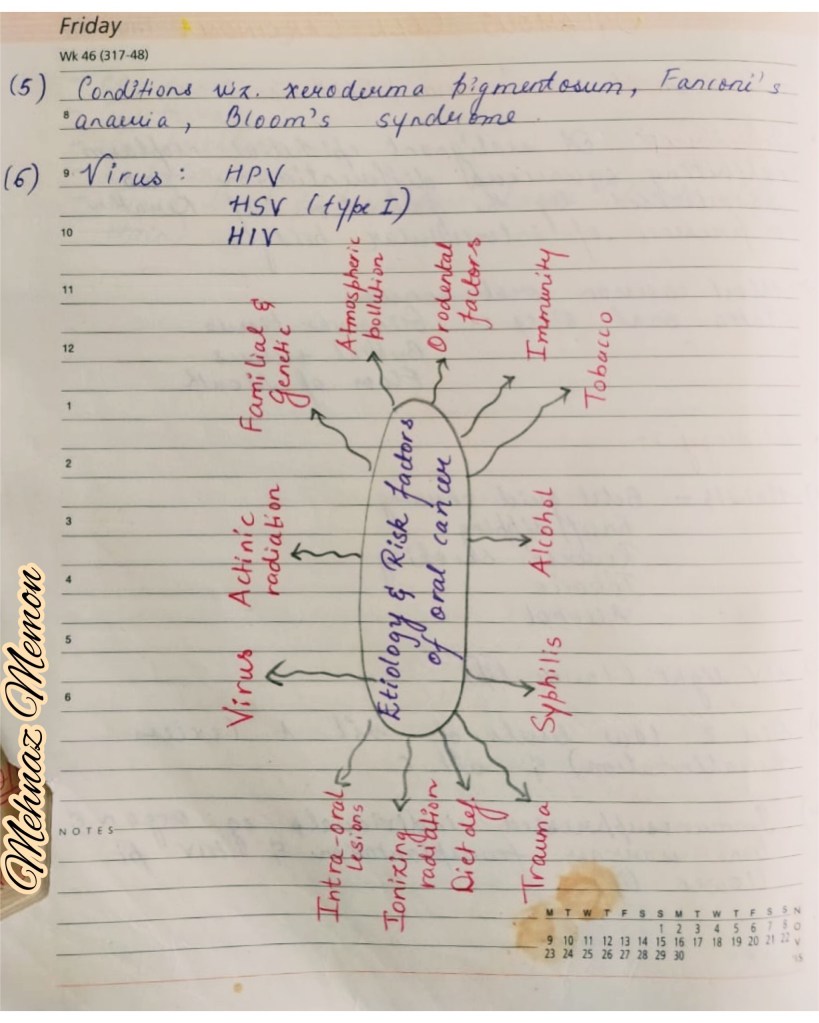 Friday
Wk 46 (317-48)
(5) Conditions viz. xeroderma pigmentosum, Fanconi's
8 anaemia, Bloom's syndrome.
(6) 9 Virus: HPV
HSV (type I)
10 HIV
11
12
1
2
3
4
5
6
NOTES
Etiology & Risk factors
of oral cancer
Virus
Actinic
radiation
Familial &
genetic
Atmospheric
pollution
Orodental
factors
Immunity
Tobacco
Alcohol
Syphilis
Trauma
Diet def.
Ionizing
radiation
Intra-oral
lesions
Mehnaz Memon
M T W T F S S M T W T F S S
1 2 3 4 5 6 7 8
9 10 11 12 13 14 15 16 17 18 19 20 21 22
23 24 25 26 27 28 29 30
NOV